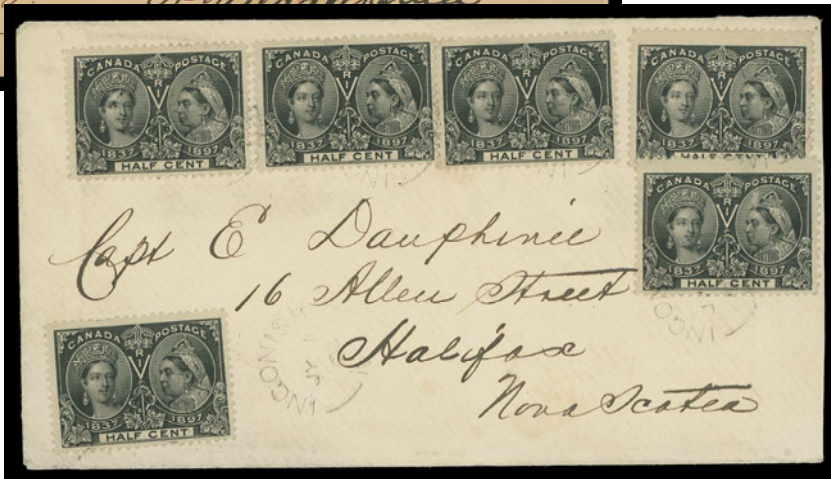 CANADA POSTAGE
V R
1837 1897
HALF CENT
CANADA POSTAGE
V R
1837 1897
HALF CENT
CANADA POSTAGE
V R
1837 1897
HALF CENT
CANADA POSTAGE
V R
1837 1897
HALF CENT
CANADA POSTAGE
V R
1837 1897
HALF CENT
Capt E Dauphinee
16 Allen Street
Halifax
Nova Scotea
INGONISH
JY
CANADA POSTAGE
V R
1837 1897
HALF CENT